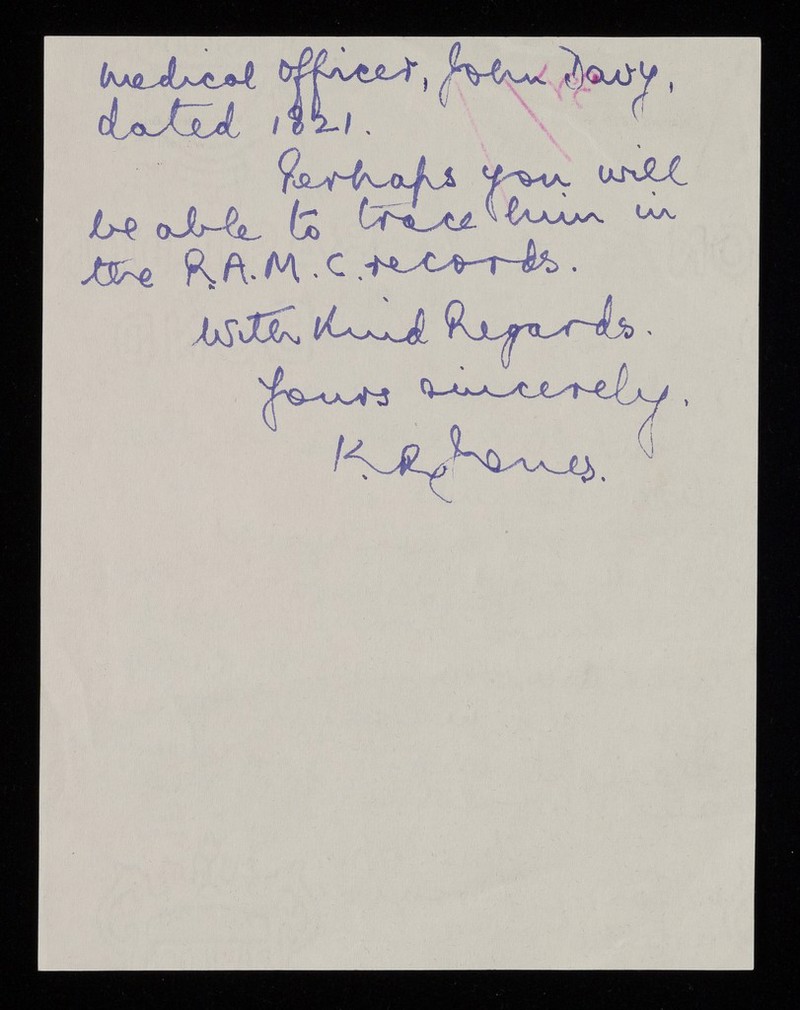 medical officer, John Davy,
dated 1821.
Perhaps you will
be able to trace him in
the R.A.M.C. records.
With Kind Regards.
Yours sincerely.
K. R. Jones.